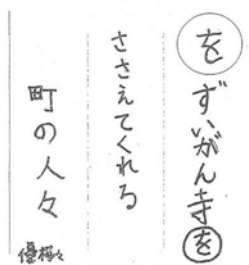 を ずいがん寺を
ささえてくれる
町の人々
優梅々